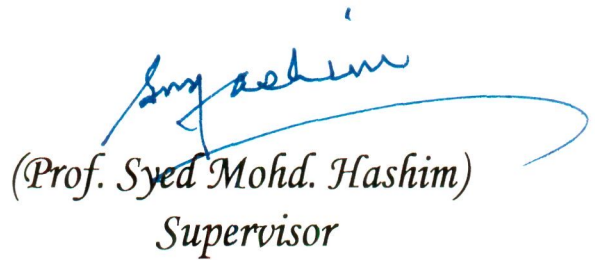 (Prof. Syed Mohd. Hashim)
Supervisor